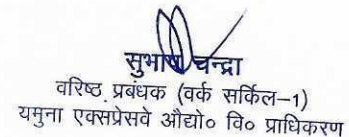 सुभाष चन्द्रा
वरिष्ठ प्रबंधक (वर्क सर्किल–1)
यमुना एक्सप्रेसवे औद्यो० वि० प्राधिकरण